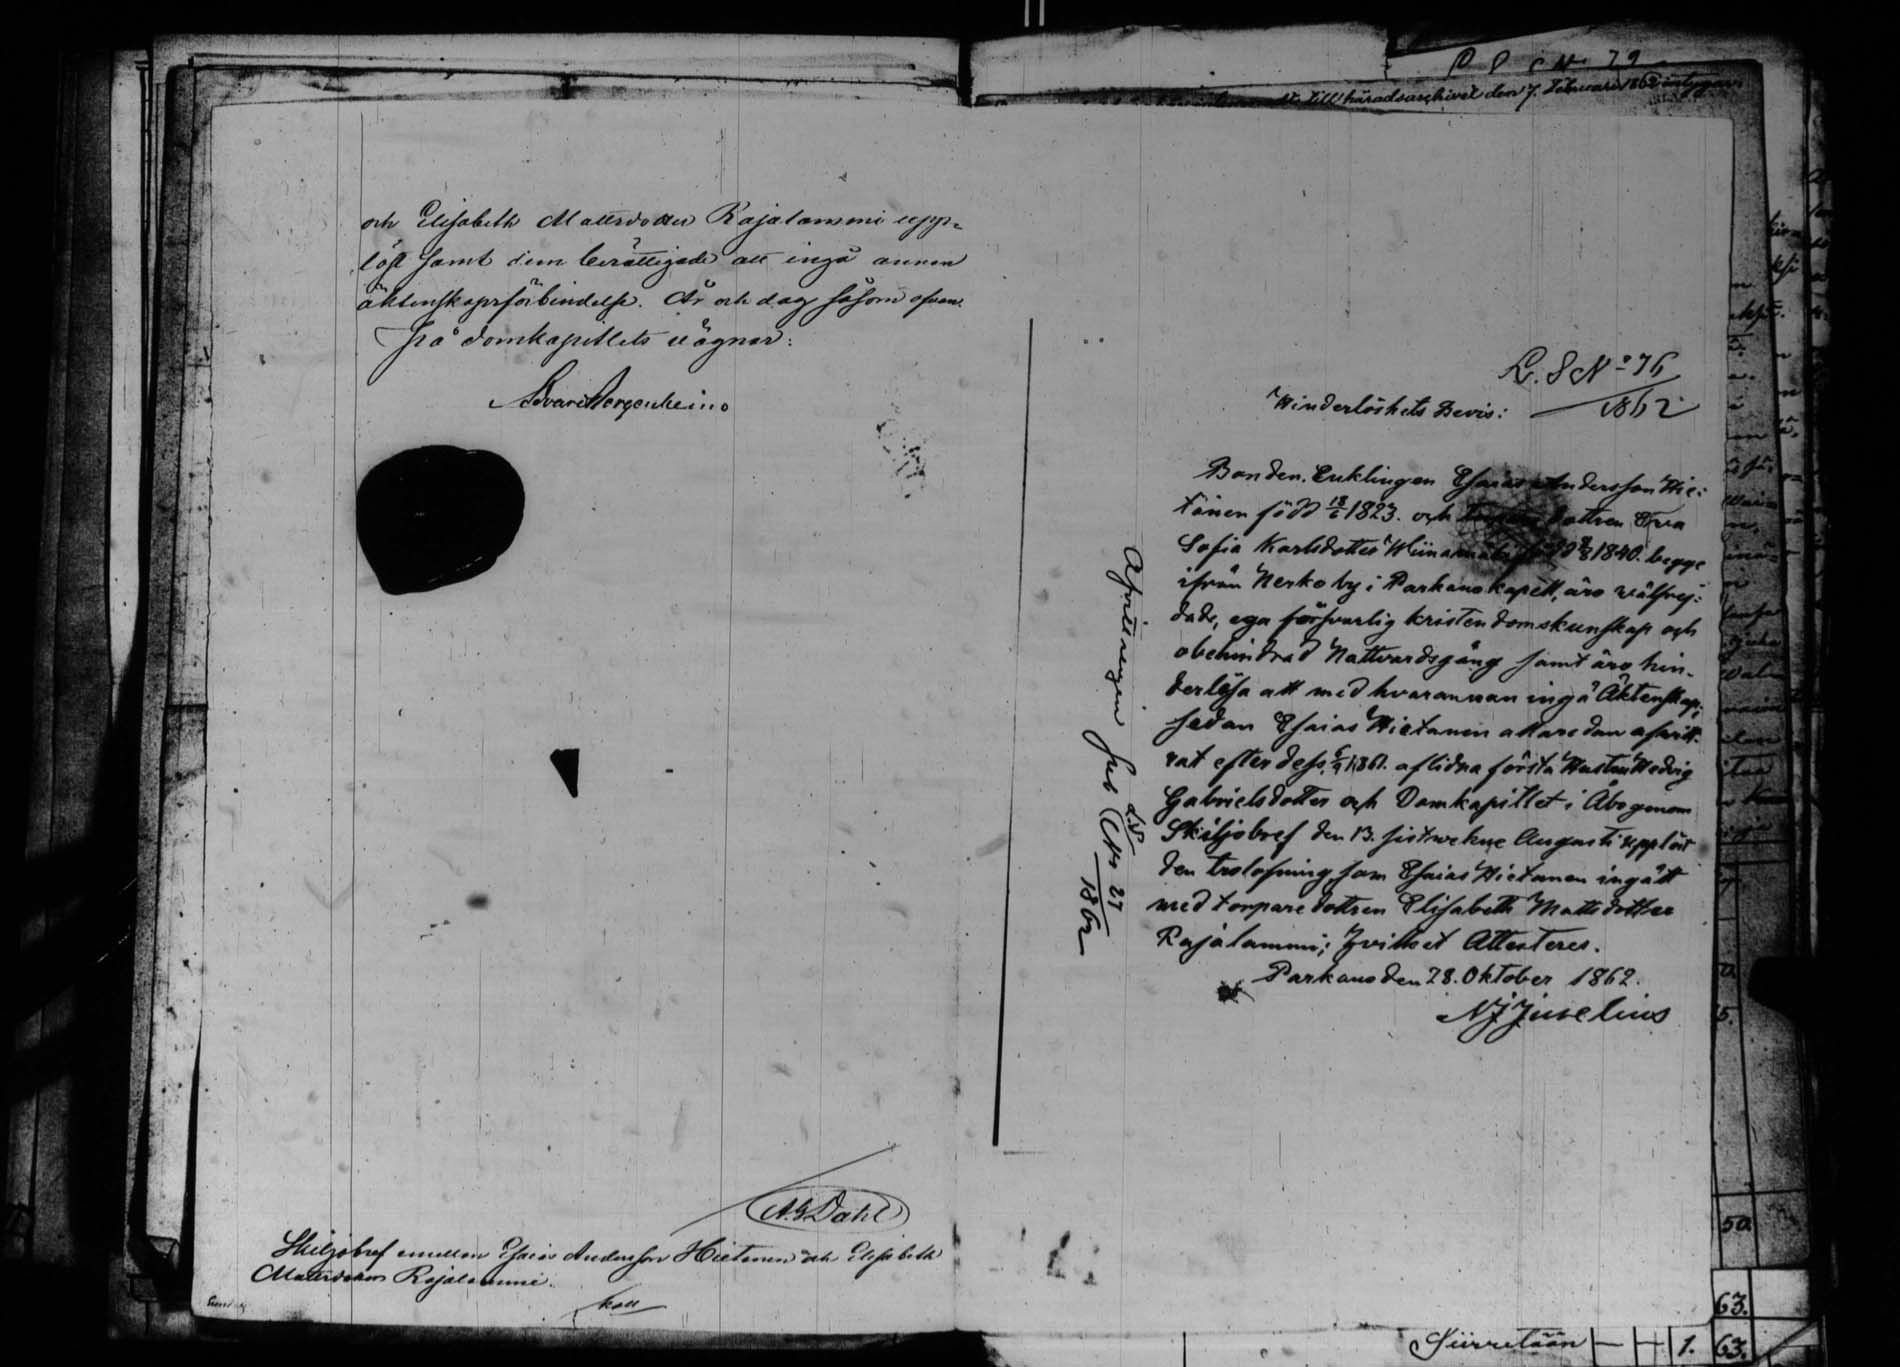 och Elisabeth Mattsdotter Rajalammi upp=
löst samt dem berättigade att ingå annan
äktenskapsförbindelse. År och dag såsom ofvan.
På domkapitlets vägnar:
Edvard Bergenheim
A.G. Dahl
Skiljobref emellan Esaias Andersson Hietanen och Elisabeth
Mattsdotter Rajalammi.
till häradsarchivet den 7. Februari 1862 intygar
L. S No 76
1862
Hinderlöshets Bevis:
Bonden, Enklingen Esaias Andersson Hie-
tanen född 18/6 1823. och dottren Eva
Sofia Karlsdotter född 1840. begge
ifrån Nerko by i Parkano kapell, äro välfrej-
dade, ega försvarlig kristendomskunskap och
obehindrad Nattvardsgång samt äro hin-
derlösa att med hvarannan ingå Äktenskap;
sedan Esaias Hietanen allaredan afvitt-
rat efter dess 1861. aflidna första Hustru Hedvig
Gabrielsdotter och Domkapitlet i Åbo genom
Skiljobref den 13. sistvekne Augusti upplöst
den trolofning som Esaias Hietanen ingått
med torparedottren Elisabeth Mattsdotter
Rajalammi; hvilket Attesteres.
Parkano den 28. Oktober 1862.
N J Juselius
Afvittringen sub L.S. No 27
1862
50
63.
Siirretään — — 1. 63.